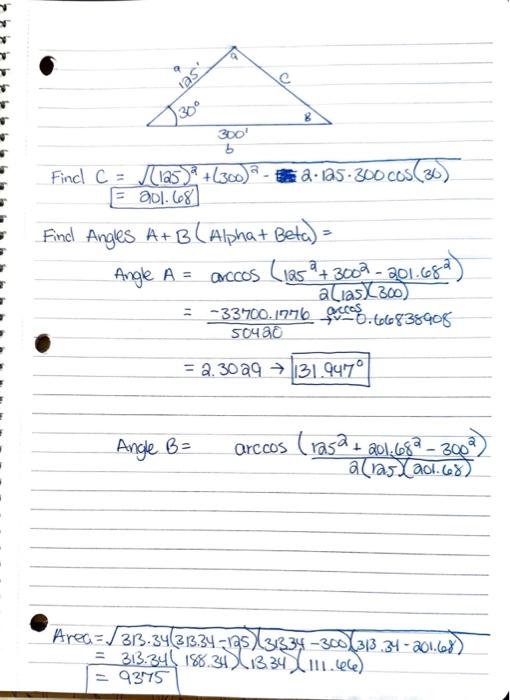 a
125'
a
c
30°
B
300'
b
Find C = √(125)² + (300)² - 2·125·300 cos(30)
= 201.68'
Find Angles A + B (Alpha + Beta) =
Angle A = arccos (125² + 300² - 201.68²)
2(125)(300)
= -33700.1776 arccos → -0.66838908
50420
= 2.3029 → 131.947°
Angle B = arccos (125² + 201.68² - 300²)
2(125)(201.68)
Area = √313.34(313.34-125)(313.34-300)(313.34-201.68)
= 313.34(188.34)(13.34)(111.66)
= 9375